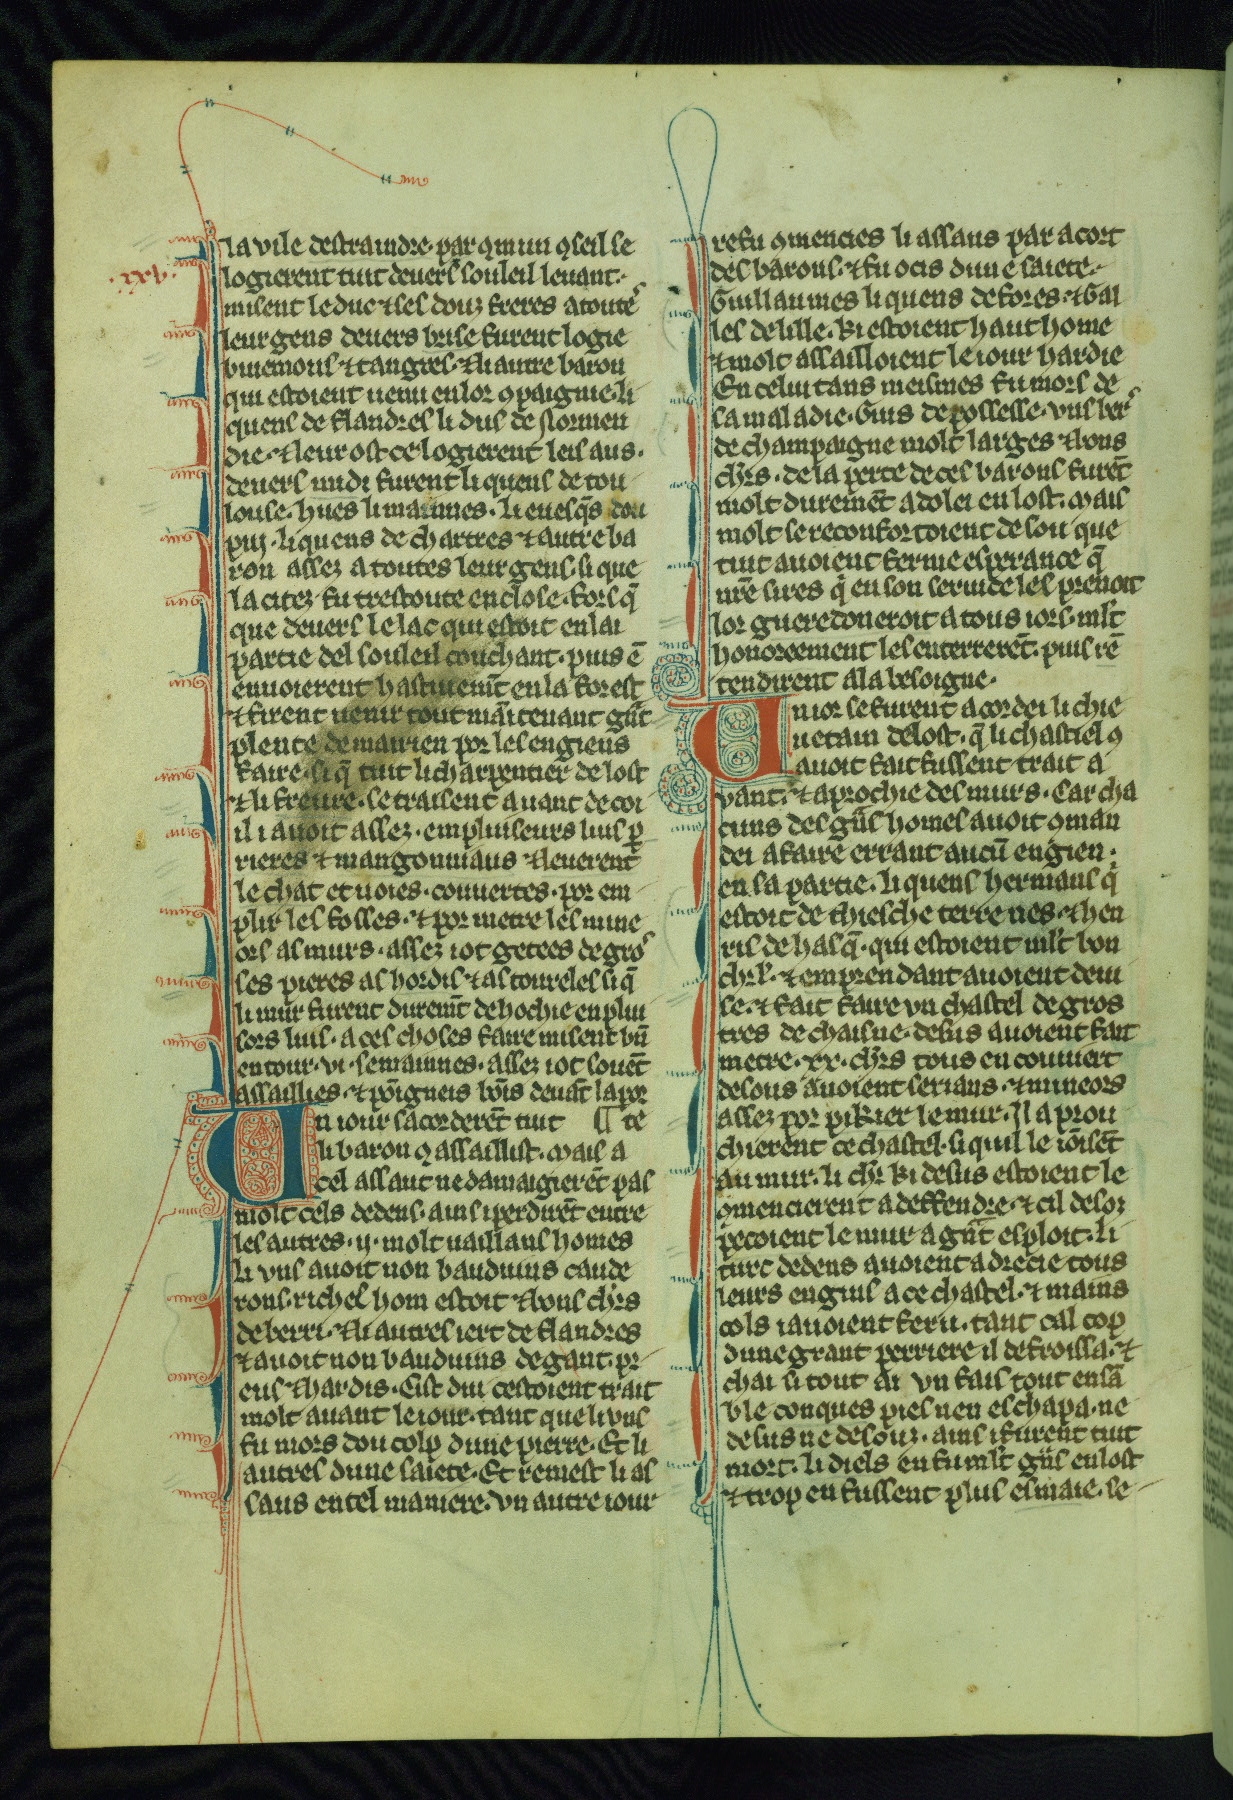 .xxv.
la vile destraindre. par 9mun 9seil se
logierent tuit deuers souleil leuant.
misent le duc ⁊ ses douz freres a toute
leur gens deuers brise furent logie
buiemons ⁊ tangres. ⁊ li autre baron
qui estoient uenu en lor 9paignie. li
quens de flandres li dus de normen
die. ⁊ leur ost ce logierent leis aus.
deuers midi furent li quens de tou
louse. hues li mainnes. li euesq̄s dou
pui. li quens de chartres ⁊ autre ba
ron assez a toutes leur gens. si que
la citez fu trestoute enclose. fors q̄
que deuers le lac qui estoit en lai
partie del souleil couchant. puis ē
enuoierent hastiuem̄t en la forest
⁊ firent uenir tout maītenant gn̄t
plente de mairien por les engiens
faire. si q̄ tuit li charpentier de lost
⁊ li freure. se traisent auant de coi
il i auoit assez. em pluiseurs luis ꝑ
rieres ⁊ mangonniaus ⁊ leuerent
le chat et uoies. couuertes. por em
plir les fosses. ⁊ por metre les mine
ors as murs. assez i ot getees de gro
ses pieres as hordis ⁊ as toureles si q̄
li mur furent durem̄t dehochie en plui
sors luis. a ces choses faire misent bn̄
entour. vi. semainnes. assez i ot souēt
assaillies. ⁊ poīgneis bōis deuāt la por
Un iour sacorderēt tuit ¶ te
li baron 9 assaillist. Mais a
cel assaut ne damaigierēt pas
molt cels dedens. ains i perdirēt entre
les autres. ii. molt uaillans homes
li vns auoit non bauduins caude
rons. riches hom estoit ⁊ bons chrs
de berri. ⁊ li autres iert de flandres
⁊ auoit non bauduins de gant. pr
eus ⁊ hardis. Cist dui cestoient trait
molt auant le iour. tant que li vns
fu mors dou colp dune pierre. Et li
autres dune saiete. Et remest li as
saus en tel maniere. Vn autre iour
refu 9mencies li assaus par acort
des barons. ⁊ fu ocis dune saiete.
Guillaumes li quens de fores. ⁊ Gal
les de lille. ki estoient haut home
⁊ molt assailloient le iour hardie
En celui tans meismes fu mors de
sa maladie. Guis de possesse. vns ber
de champaigne molt larges ⁊ bons
chrs. de la perte de ces barons furēt
molt duremēt adolei en lost. Mais
molt se reconfortoient de sou que
tuit auoient ferme esperance q̄
nr̄e sires q̄ en son seruice les prenoit
lor gueredoneroit a tous iors. mlt
honoreement les enterrerēt. puis rē
tendirent a la besoigne.
Un ior se furent acordei li chie
uetain de lost. q̄ li chastiel 9
auoit fait fussent trait a
vant. ⁊ aprochie des murs. Car cha
cuns des gn̄s homes auoit 9man
dei a faire errant aucū engien.
en sa partie. li quens hermans q̄
estoit de thiesche terre nes. ⁊ hen
ris de hasq̄. qui estoient mlt bon
chrl. ⁊ emprendant auoient deui
se. ⁊ fait faire vn chastel de gros
tres de chaisne. desus auoient fait
metre. xx. chrs tous en couuert
desous auoient serians. ⁊ mineors
assez por pikier le mur. Il aprou
chierent ce chastel. si quil le ioīsēt
au mur. li chr ki desus estoient le
9mencierent a deffendre. ⁊ cil desor
pecoient le mur a gn̄t esploit. li
turc dedens auoient adrecie tous
leurs engins a ce chastel. ⁊ mains
cols i auoient feru. tant cal cop
dune grant perriere il defroissa. ⁊
chai si tout a vn fais tout ensā
ble conques pies nen eschapa. ne
desus ne desouz. ains i furent tuit
mort. li diels en fu mlt gn̄s en lost
⁊ trop en fussent plus esmaie. se